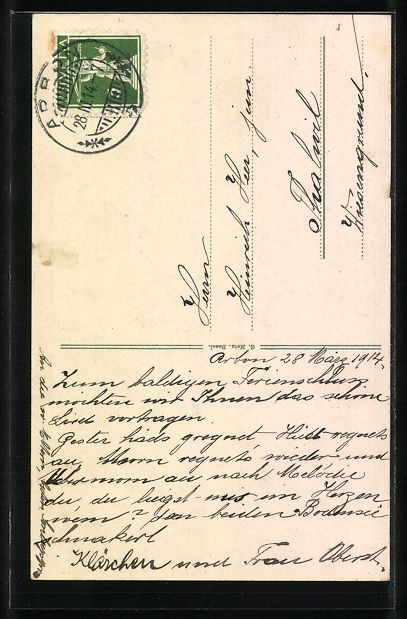 ARBON
28.III.14
HELVETIA
Herrn
Heinrich Heer, jun.
Thalwil
Wiesengrund.
G. Metz, Basel.
Arbon 28 März 1914.
Zum baldigen Ferienschluss
möchten wir Ihnen das schöne
Lied vortragen.
Gester häds gregnet Hüdt regnets
au, Morn regnets wieder und
au nach Melodie
du, du liegst mir im Herzen
beiden Bodensee
Klärchen und Frau Oberst.